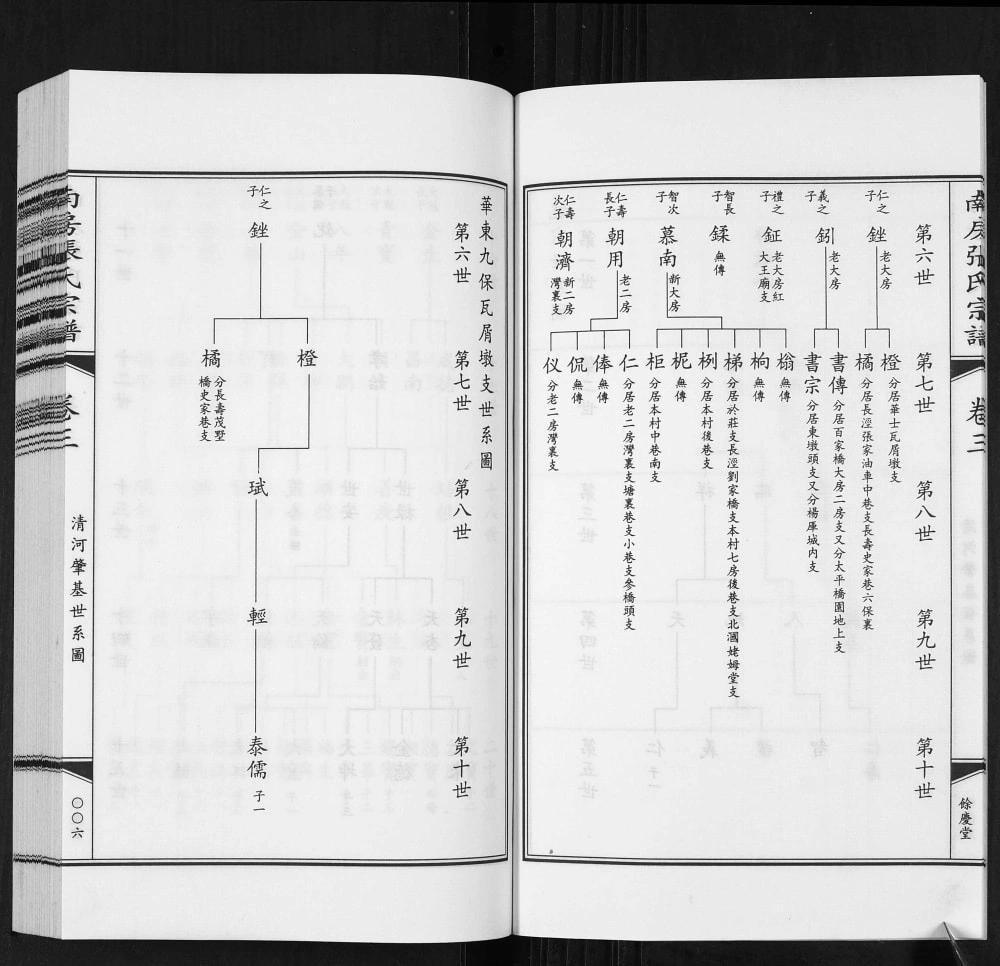 南房張氏宗譜
卷三
餘慶堂
第六世
第七世
第八世
第九世
第十世
仁之子
銼
老大房
橙
分居華士瓦屑墩支
橘
分居長涇張家油車中巷支長壽史家巷六保裏
義之子
釟
老大房
書傳
分居百家橋大房二房支又分太平橋園地上支
書宗
分居東墩頭支又分楊厙城内支
禮之子
鉦
老大房紅
大王廟支
智長子
鍒
無傳
智次子
慕南
新大房
榒
無傳
枸
無傳
梯
分居於莊支長涇劉家橋支本村七房後巷支北漍姥姆堂支
栵
分居本村後巷支
柅
無傳
柜
分居本村中巷南支
仁壽長子
朝用
老二房
仁
分居老二房灣裏支塘裏巷支小巷支參橋頭支
俸
無傳
侃
無傳
仪
分老二房灣裏支
仁壽次子
朝濟
新二房
灣裏支
華東九保瓦屑墩支世系圖
第六世
第七世
第八世
第九世
第十世
仁之子
銼
橙
橘
分長壽茂墅
橋史家巷支
珷
輕
泰儒
子一
南房張氏宗譜
卷三
清河肇基世系圖
〇〇六